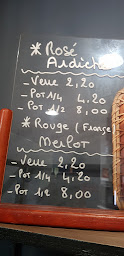 * Rosé
Ardèche
- Verre 2,20
- Pot 1/4 4,20
- Pot 1/2 8,00
* Rouge (France)
Merlot
- Verre 2,20
- Pot 1/4 4,20
- Pot 1/2 8,00